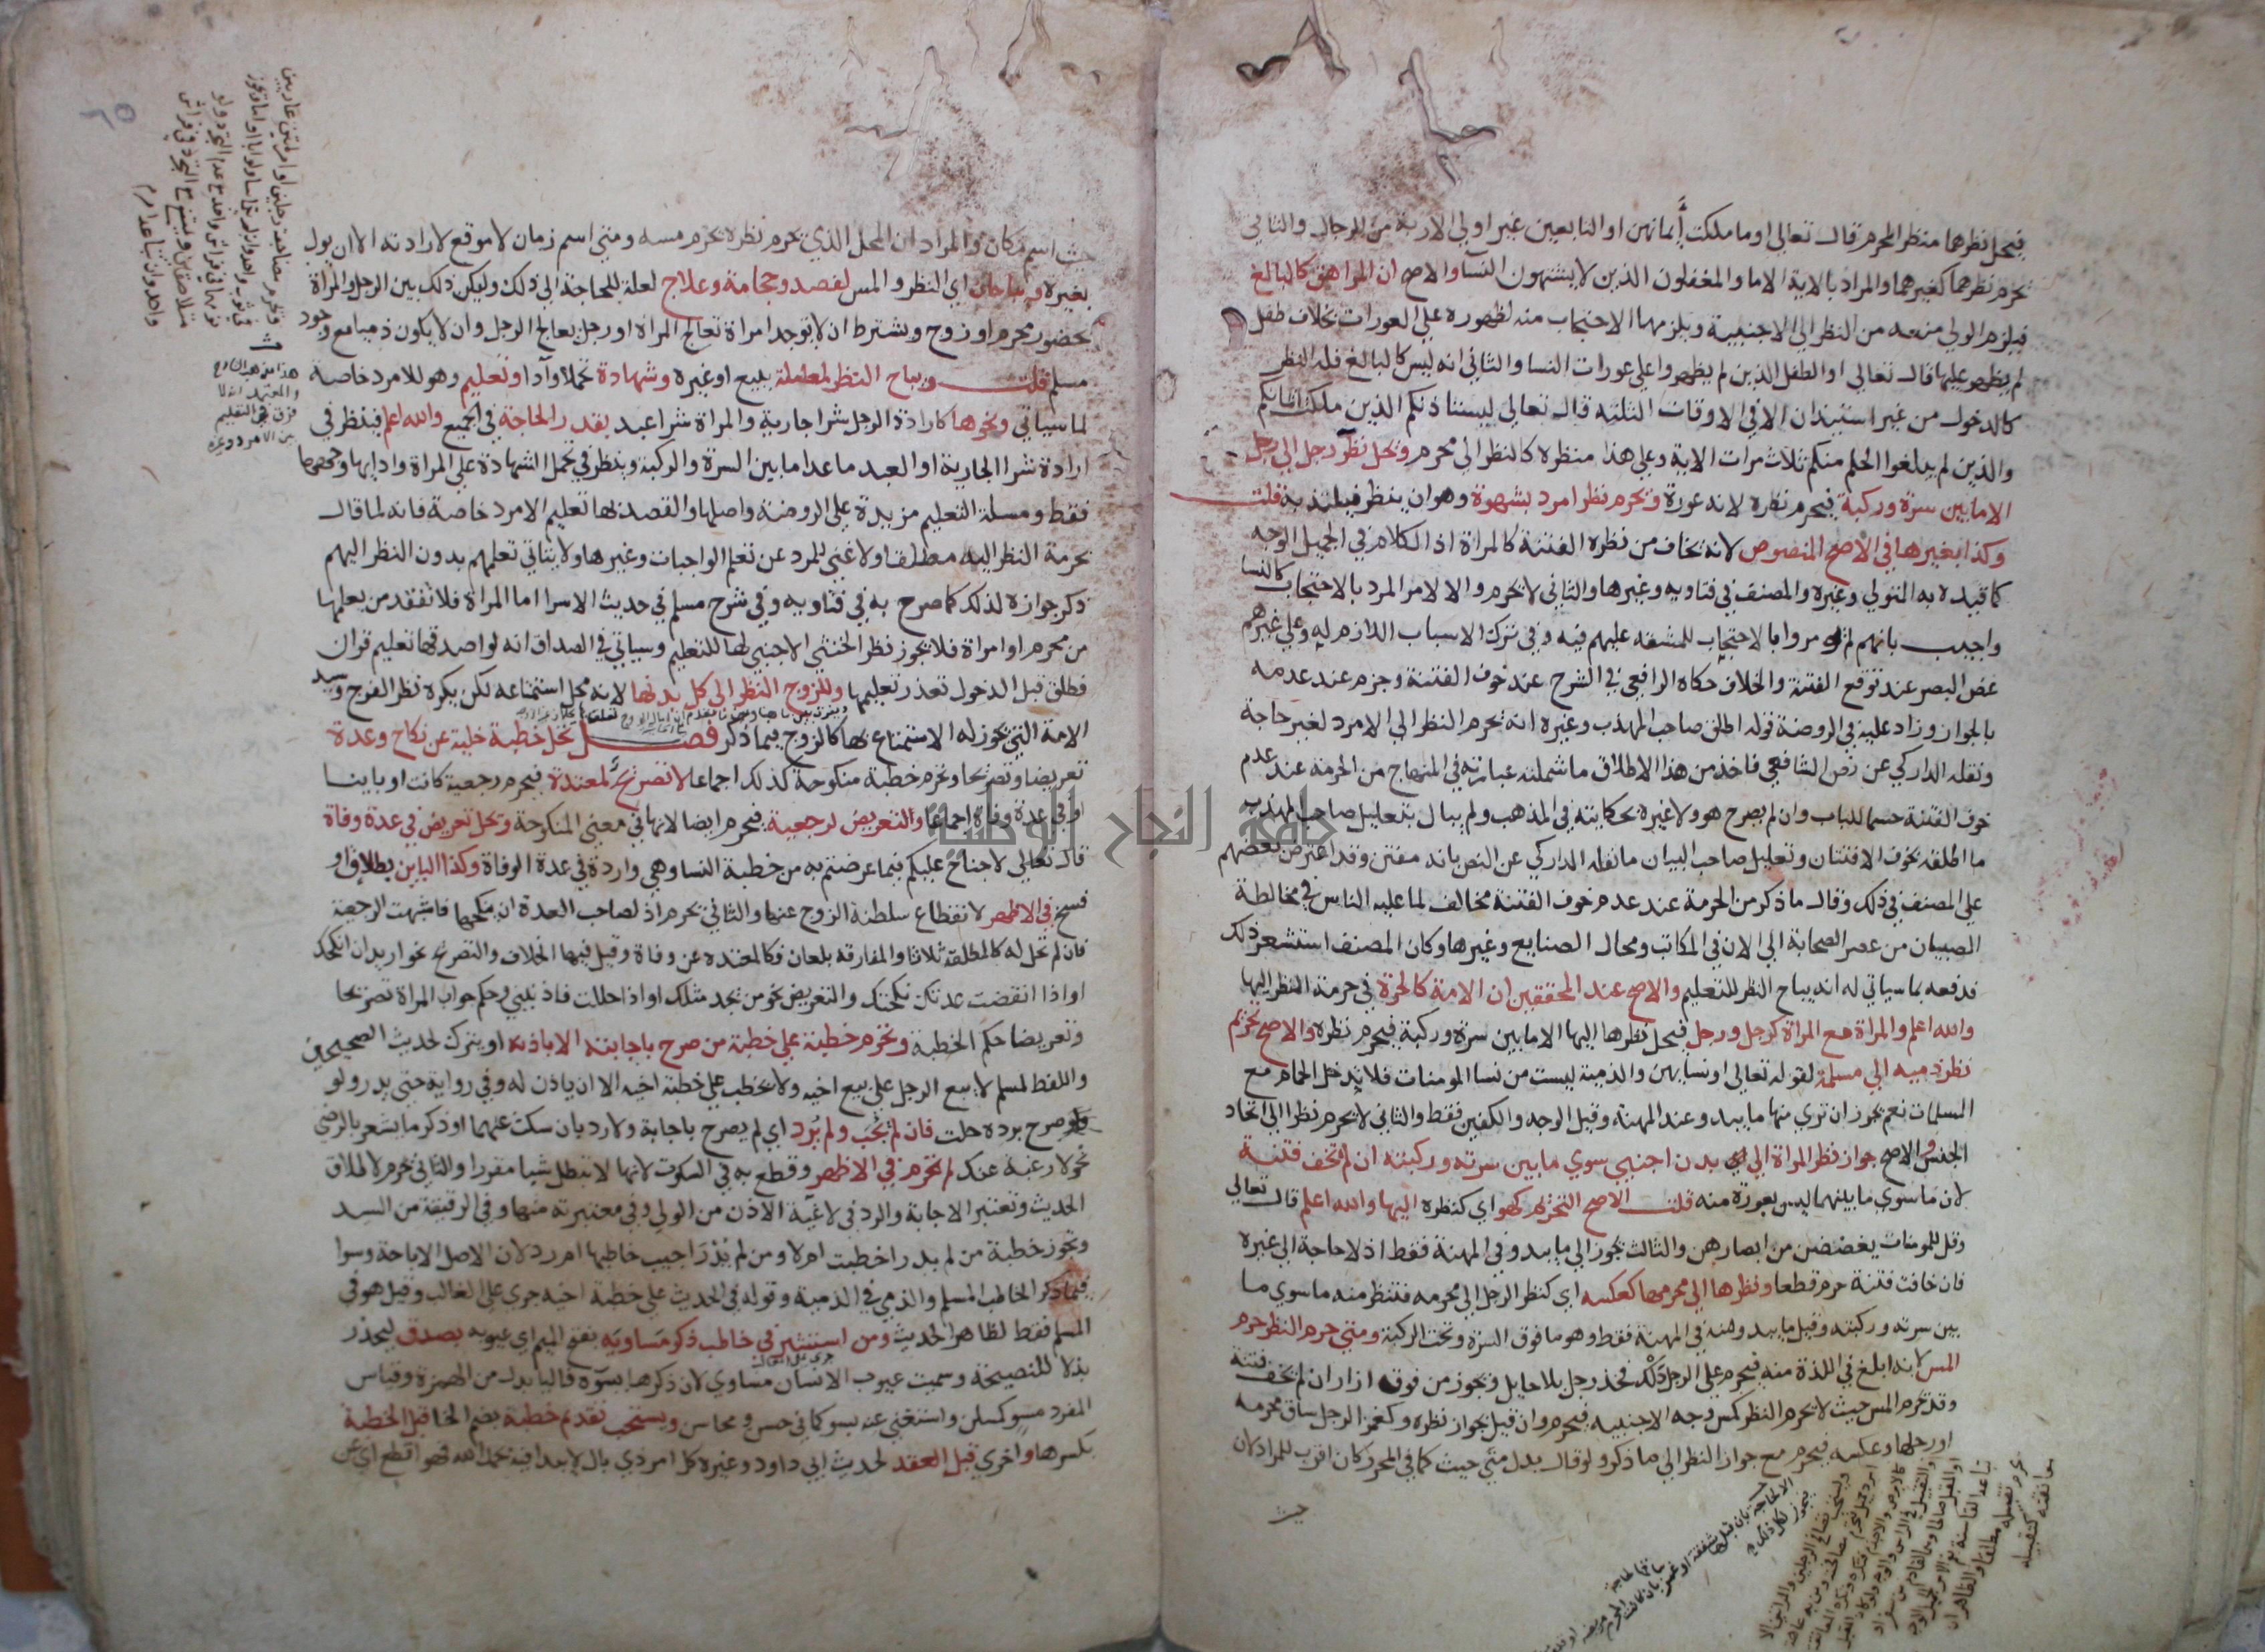 فيحل نظرها منظر المحرم قال تعالى او ما ملكت أيمانهن او التابعين غير اولي الاربة من الرجال والثاني
يحرم نظرهما كغيرهما والمراد بالاية الاما والمغفلون الذين لا يشتهون النسا والاصح ان المراهق كالبالغ
فيلزم الولي منعه من النظر الي الاجنبية ويلزمها الاحتجاب منه لظهوره علي العورات بخلاف طفل
لم يظهر عليها قال تعالي او الطفل الذين لم يظهروا علي عورات النسا والثاني انه ليس كالبالغ فله النظر
كالدخول من غير استيذان الا في الاوقات الثلثة قال تعالي ليستاذنكم الذين ملكت ايمانكم
والذين لم يبلغوا الحلم منكم ثلاث مرات الاية وعلي هذا منظره كالنظر الي محرم ويحل نظر رجل الي رجل
الا ما بين سرة وركبة فيحرم نظره لانه عورة ويحرم نظر امرد بشهوة وهو ان ينظر فيلتذ به قلت
وكذا بغيرها في الاصح المنصوص لانه يخاف من نظره الفتنة كالمراة اذ الكلام في الجميل الوجه
كما قيده به المتولي وغيره والمصنف في فتاويه وغيرها والثاني لا يحرم والا لامر المرد بالاحتجاب كالنسا
واجيب بانهم لم يومروا بالاحتجاب للمشقة عليهم فيه وفي ترك الاسباب اللازم له وعلي غيرهم
غض البصر عند توقع الفتنة والخلاف حكاه الرافعي في الشرح عند خوف الفتنة وجزم عند عدمه
بالجواز وزاد عليه في الروضة قوله اطلق صاحب المهذب وغيره انه يحرم النظر الي الامرد لغير حاجة
ونقله الداركي عن نص الشافعي فاخذ من هذا الاطلاق ما شملته عبارته في المنهاج من الحرمة عند عدم
خوف الفتنة حسما للباب وان لم يصرح هو ولا غيره بحكايته في المذهب ولم يبال بتعليل صاحب المهذب
ما اطلقه بخوف الافتتان وتعليل صاحب البيان ما نقله الداركي عن النص بانه مفتن وقد اعترض بعضهم
علي المصنف في ذلك وقال ما ذكر من الحرمة عند عدم خوف الفتنة مخالف لما عليه الناس في مخالطة
الصبيان من عصر الصحابة الي الان في المكاتب ومحال الصنايع وغيرها وكان المصنف استشعر ذلك
فدفعه بما سياتي له انه يباح النظر للتعليم والاصح عند المحققين ان الامة كالحرة في حرمة النظر اليها
والله اعلم والمراة مع المراة كرجل ورجل فيحل نظرها اليها الا ما بين سرة وركبة فيحرم نظره والاصح تحريم
نظر ذمية الي مسلمة لقوله تعالي او نسايهن والذمية ليست من نسا المومنات فلا تدخل الحمام مع
المسلمات نعم يجوز ان تري منها ما يبدو عند المهنة وقيل الوجه والكفين فقط والثاني لا يحرم نظرا الي اتحاد
الجنس والاصح جواز نظر المراة الي بدن اجنبي سوي ما بين سرته وركبته ان لم تخف فتنة
لان ما سوي ما بينهما ليس بعورة منه قلت الاصح التحريم كهو اي كنظره اليها والله اعلم قال تعالي
وقل للمومنات يغضضن من ابصارهن والثالث يجوز الي ما يبدو في المهنة فقط اذ لا حاجة الي غيره
فان خافت فتنة حرم قطعا ونظرها الي محرمها كعكسه اي كنظر الرجل الي محرمه فتنظر منه ما سوي ما
بين سرته وركبته وقيل ما يبدو منه في المهنة فقط وهو ما فوق السرة وتحت الركبة ومتي حرم النظر حرم
المس لانه ابلغ في اللذة منه فيحرم علي الرجل دلك فخذ رجل بلا حايل ويجوز من فوق ازار ان لم يخف فتنة
وقد يحرم المس حيث لا يحرم النظر كمس وجه الاجنبية فيحرم وان قيل بجواز نظره وكغمز الرجل ساق محرمه
او رجلها وعكسه فيحرم مع جواز النظر الي ما ذكر ولو قال بدل متي حيث كما في المحرر كان اقرب للمراد لان
حيث
حيث اسم مكان والمراد ان المحل الذي يحرم نظره يحرم مسه ومتي اسم زمان لا موقع لارادته الا ان يول
بغيره ويباحان اي النظر والمس لفصد وحجامة وعلاج لعلة للحاجة الي ذلك وليكن ذلك بين الرجل والمراة
بحضور محرم او زوج ويشترط ان لا توجد امراة تعالج المراة او رجل يعالج الرجل وان لا يكون ذميا مع وجود
مسلم قلت ويباح النظر لمعاملة ببيع او غيره وشهادة تحملا وآدا وتعليم وهو للامرد خاصة
لما سياتي ونحوها كارادة الرجل شرا جارية والمراة شرا عبد بقدر الحاجة في الجميع والله اعلم فينظر في
ارادة شرا الجارية او العبد ما عدا ما بين السرة والركبة وينظر في تحمل الشهادة علي المراة وادايها وجهها
فقط ومسلة التعليم مزيدة علي الروضة واصلها والقصد بها تعليم الامرد خاصة فانه لما قال
بحرمة النظر اليه مطلقا ولا غني للمرد عن تعلم الواجبات وغيرها ولا يتاتي تعلمهم بدون النظر اليهم
ذكر جوازه لذلك كما صرح به في فتاويه وفي شرح مسلم في حديث الاسرا اما المراة فلا تفقد من يعلمها
من محرم او امراة فلا يجوز نظر الخنثي الاجنبي لها للتعليم وسياتي في الصداق انه لو اصدقها تعليم قران
فطلق قبل الدخول تعذر تعليمها وللزوج النظر الي كل بدنها لانه محل استمتاعه لكن يكره نظر الفرج وسيد
الامة التي يجوز له الاستمتاع بها كالزوج فيما ذكر فصل تحل خطبة خلية عن نكاح وعدة
تعريضا وتصريحا وتحرم خطبة منكوحة كذلك اجماعا لا تصريح لمعتدة فيحرم رجعية كانت او باينا
او في عدة وفاة اجماعا والتعريض لرجعية فيحرم ايضا لانها في معني المنكوحة ويحل تعريض في عدة وفاة
قال تعالي لا جناح عليكم فيما عرضتم به من خطبة النسا وهي واردة في عدة الوفاة وكذا الباين بطلاق او
فسخ في الاظهر لانقطاع سلطنة الزوج عنها والثاني يحرم اذ لصاحب العدة ان ينكحها فاشبهت الرجعية
فان لم تحل له كالمطلقة ثلاثا والمفارقة بلعان فكالمعتدة عن وفاة وقيل فيها الخلاف والتصريح نحو اريد ان انكحك
او اذا انقضت عدتك نكحتك والتعريض نحو من يجد مثلك او اذا حللت فاذنيني وحكم جواب المراة تصريحا
وتعريضا حكم الخطبة وتحرم خطبة علي خطبة من صرح باجابته الا باذنه او يترك لحديث الصحيحين
واللفظ لمسلم لا يبع الرجل علي بيع اخيه ولا يخطب علي خطبة اخيه الا ان ياذن له وفي رواية حتي يذر ولو
صرح برده حلت فان لم يجب ولم يرد اي لم يصرح باجابة ولا رد بان سكت عنهما او ذكر ما يشعر بالرضي
نحو لا رغبة عنك لم تحرم في الاظهر وقطع به في السكوت لانها لا تبطل شيا مقررا والثاني تحرم لاطلاق
الحديث وتعتبر الاجابة والرد في لاغية الاذن من الولي وفي معتبرته منها وفي الرقيقة من السيد
وتجوز خطبة من لم يدر اخطبت ام لا ومن لم يدر اجيب خاطبها ام رد لان الاصل الاباحة وسوا
فيما ذكر الخاطب المسلم والذمي في الذمية وقوله في الحديث علي خطبة اخيه جري علي الغالب وقيل هو في
المسلم فقط لظاهر الحديث ومن استشير في خاطب ذكر مساويه بفتح الميم اي عيوبه بصدق ليحذر
بذلا للنصيحة وسميت عيوب الانسان مساوي لان ذكرها يسوه فاليا بدل من الهمزة وقياس
المفرد مسو كمسكن واستغني عنه بسو كما في حسن ومحاسن ويستحب تقديم خطبة بضم الخا قبل الخطبة
بكسرها واخري قبل العقد لحديث ابي داود وغيره كل امر ذي بال لا يبدا فيه بحمد الله فهو اقطع اي عن
جامعة النجاح الوطنية